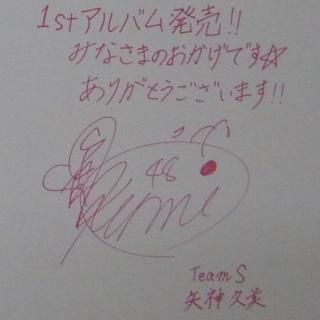 1stアルバム発売!!
みなさまのおかげです☆
ありがとうございます!!
48
Kumi
TeamS
矢神久美